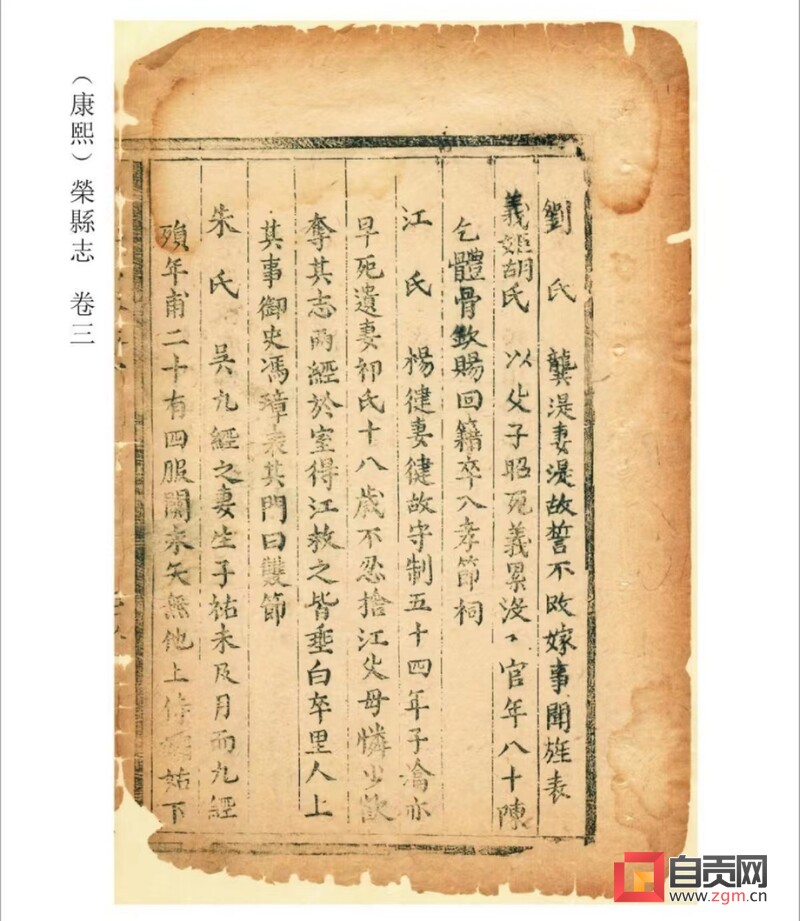 （康熙）榮縣志 卷三
劉氏 龔湜妻湜故誓不改嫁事聞旌表
義姬胡氏 以父子昭死義累没入官年八十陳
乞體骨欽賜回籍卒入孝節祠
江氏 楊徤妻徤故守制五十四年子瀹亦
早死遺妻祁氏十八歲不忍捨江父母憐少欲
奪其志而經於室得江救之皆垂白卒里人上
其事御史馮璋表其門曰雙節
朱氏 吴九經之妻生子祐未及月而九經
殞年甫二十有四服闋永矢無他上侍姑下
自贡网
www.zgm.cn